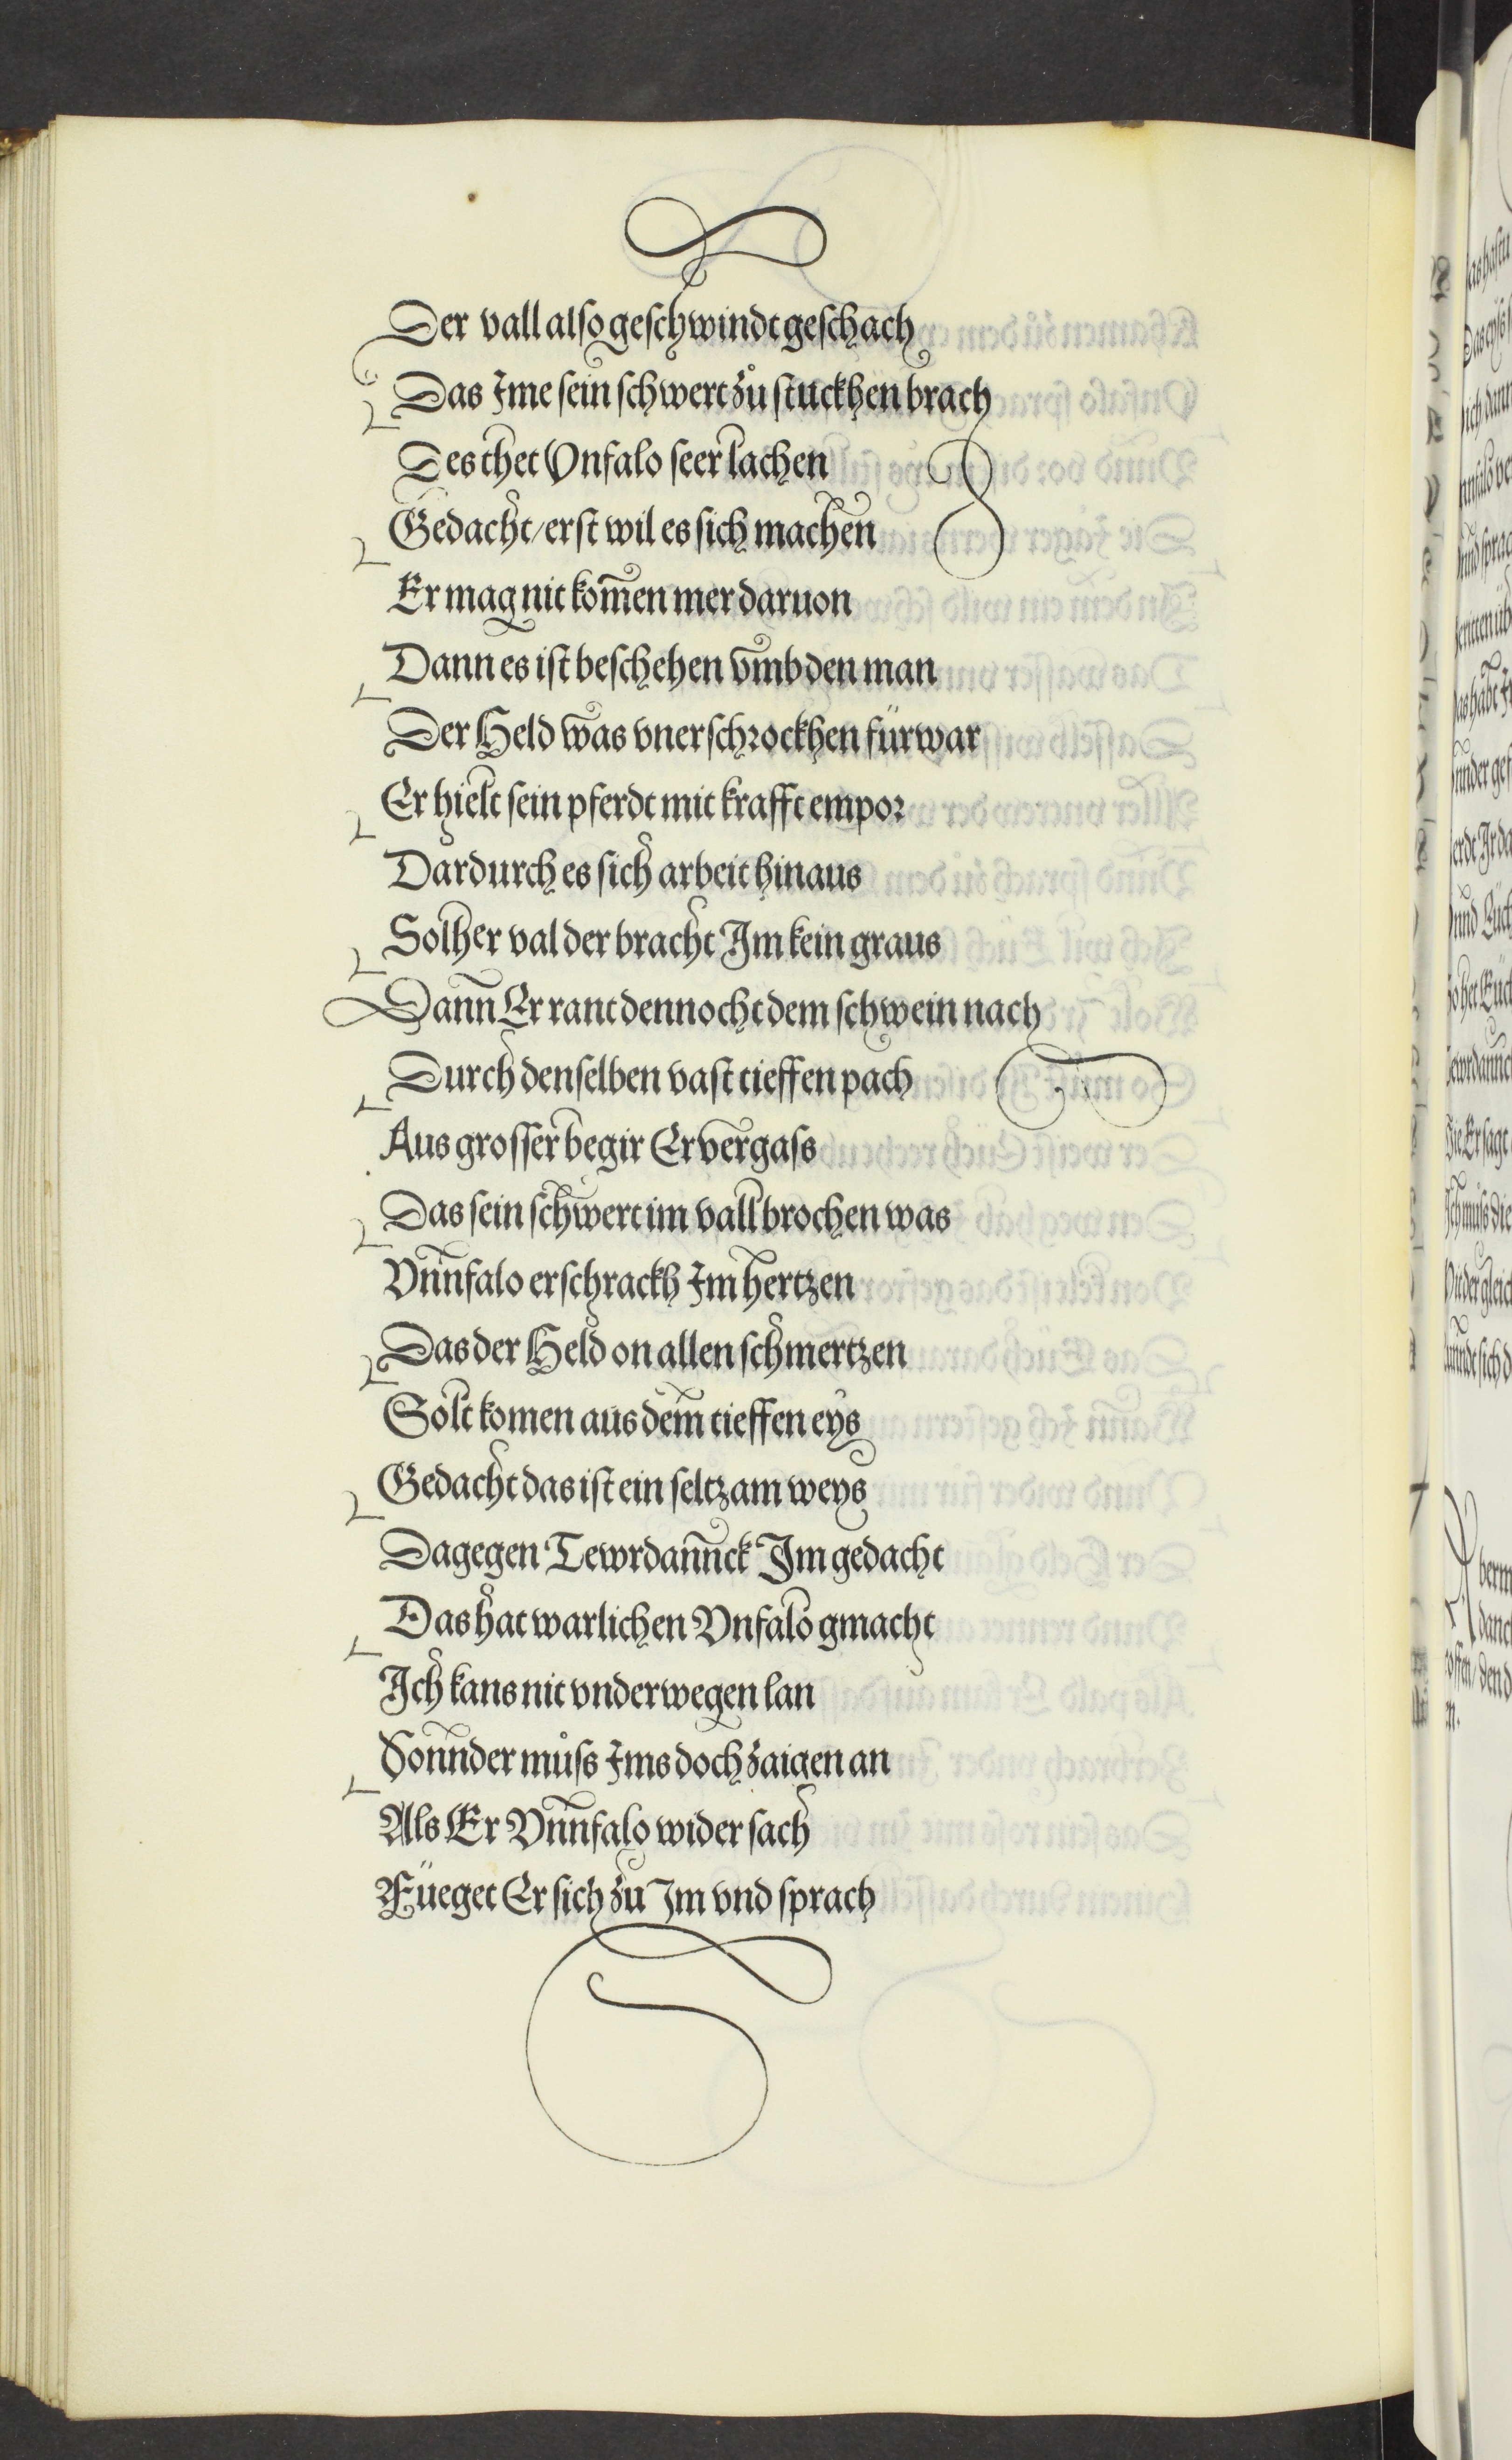 Der vall also geschwindt geschach
Das Ime sein schwert zů stuckhen brach
Des thet Vnfalo seer lachen
Gedacht/erst wil es sich machen
Er mag nit kom̄en mer daruon
Dann es ist beschehen vmb den man
Der Held was vnerschrockhen fürwar
Er hielt sein pferdt mit krafft empor
Dardurch es sich arbeit hinaus
Solher val der bracht Im kein graus
Dann Er rant dennocht dem schwein nach
Durch denselben vast tieffen pach
Aus grosser begir Er vergass
Das sein schwert im vall brochen was
Vnnfalo erschrackh Im hertzen
Das der Held on allen schmertzen
Solt komen aus dem tieffen eys
Gedacht das ist ein seltzam weys
Dagegen Tewrdannck Im gedacht
Das hat warlichen Vnfalo gmacht
Ich kans nit vnderwegen lan
Sonnder můss Ims doch zaigen an
Als Er Vnnfalo wider sach
Füeget Er sich zu Im vnd sprach